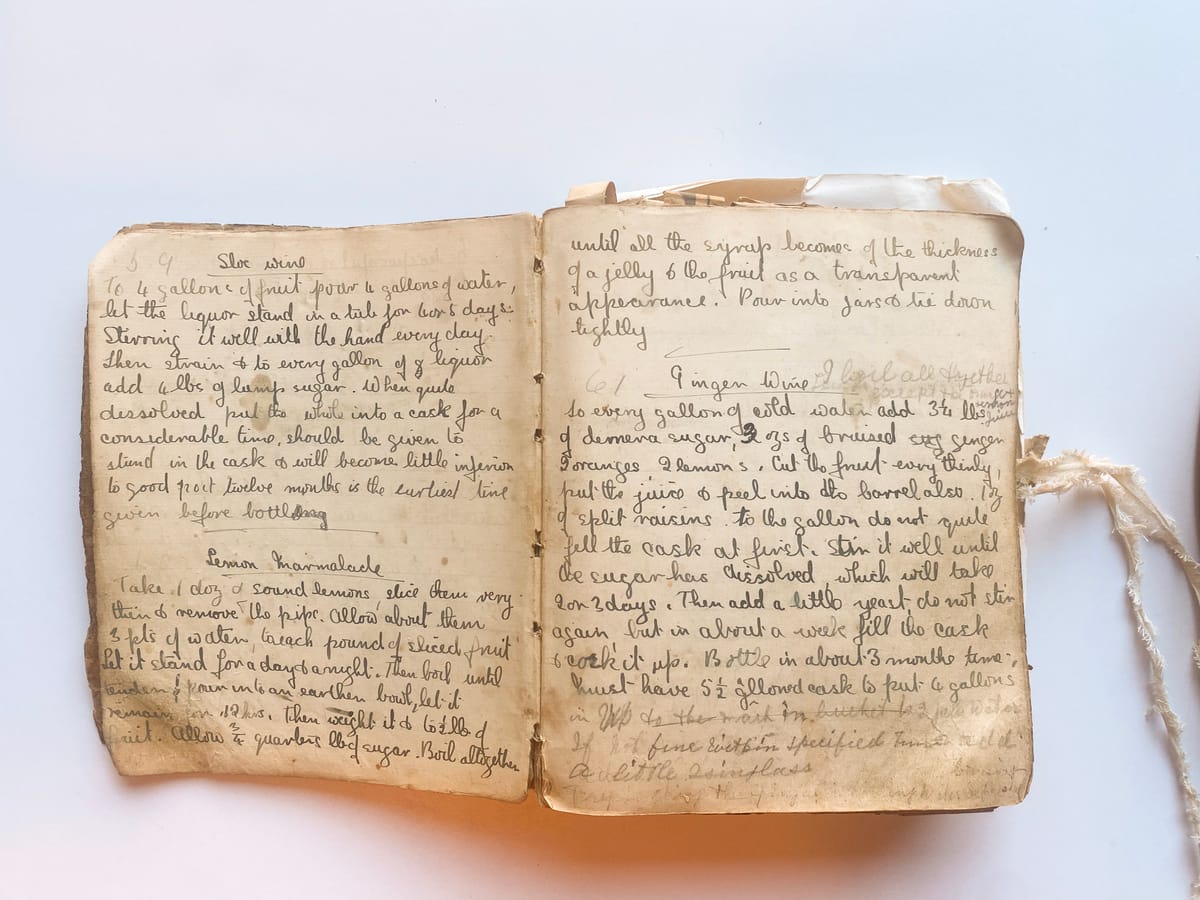 59
Sloe wine
To 4 gallons of fruit pour 4 gallons of water,
let the liquor stand in a tub for 4 or 5 days:
Sterring it well with the hand every day.
Then strain & to every gallon of liquor
add 4 lbs of lump sugar. When quite
dissolved put the whole into a cask for a
considerable time, should be given to
stand in the cask & will become little inferior
to good port twelve months is the earliest time
given before bottling
Lemon Marmalade
Take 1 doz of sound lemons, slice them very
thin & remove the pips. Allow about them
3 pts of water, to each pound of sliced fruit
Let it stand for a day & a night. Then boil until
tender & pour into an earthen bowl, let it
remain for 12 hrs. Then weight it & to lb of
fruit. Allow 3/4 quarters lb of sugar. Boil altogether
until all the syrup becomes of the thickness
of a jelly & the fruit as a transparent
appearance. Pour into jars & tie down
tightly
61
Ginger Wine I boil all together
to every gallon of cold water add 3 1/4 lbs
of demera sugar, 3 ozs of bruised sug ginger
5 oranges 2 lemons. Cut the fruit very thinly,
put the juice & peel into the barrel also. 1 oz
of split raisins. to the gallon do not quite
fill the cask at first. Stir it well until
the sugar has dissolved, which will take
2 or 3 days. Then add a little yeast, do not stir
again, but in about a week fill the cask
& cork it up. Bottle in about 3 months time,
must have 5 1/2 glloned cask to put 4 gallons
in to the mark in bucket is 2 water
If not fine within specified time add
a little isinglass